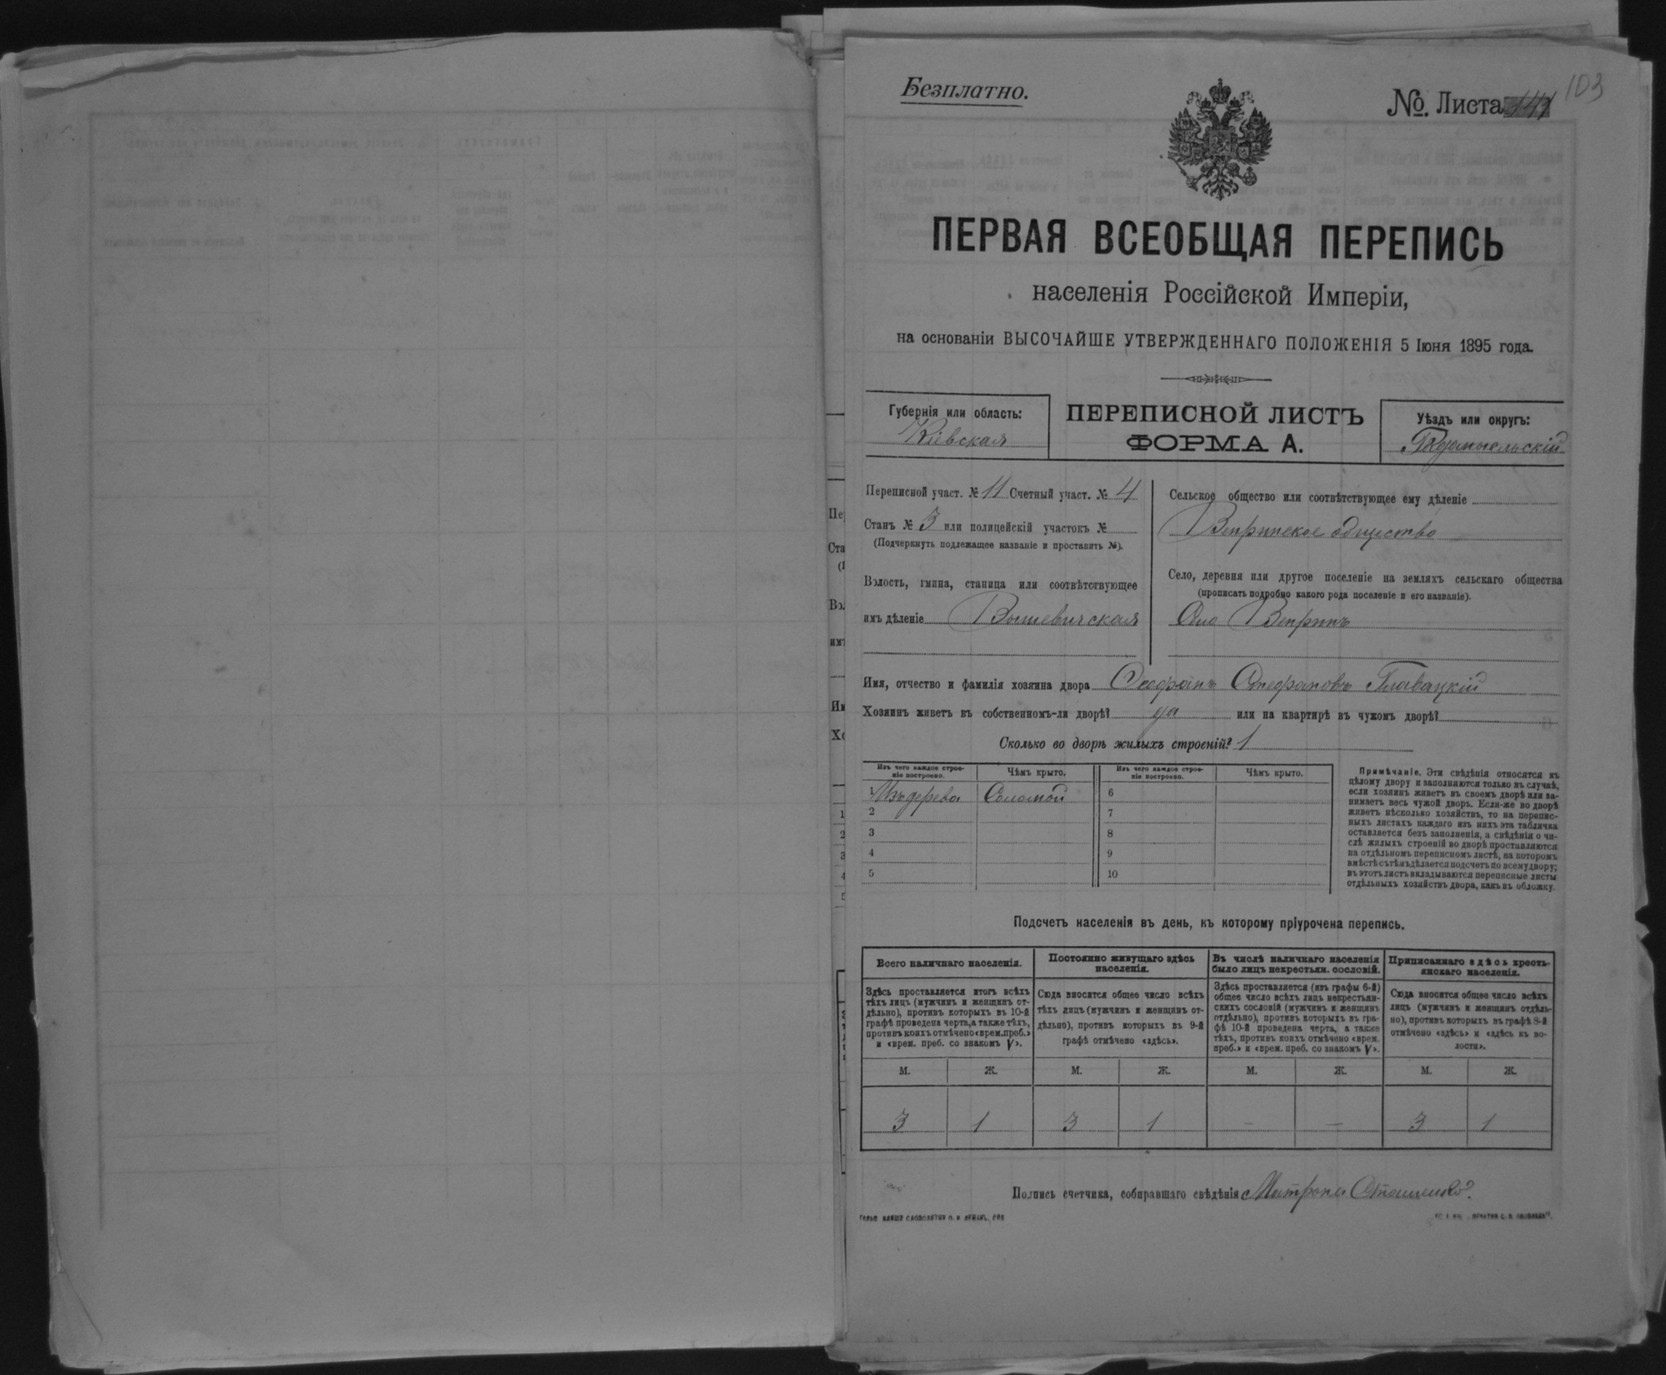 Безплатно.
№. Листа 141
103
ПЕРВАЯ ВСЕОБЩАЯ ПЕРЕПИСЬ
населенія Россійской Имперіи,
на основаніи ВЫСОЧАЙШЕ УТВЕРЖДЕННАГО ПОЛОЖЕНІЯ 5 Іюня 1895 года.
Губернія или область:
Кіевская
ПЕРЕПИСНОЙ ЛИСТЪ
ФОРМА А.
Уѣздъ или округъ:
Радомысльскій
Переписной участ. № 11 Счетный участ. № 4
Станъ № 3 или полицейскій участокъ №
(Подчеркнуть подлежащее названіе и проставить №).
Волость, гмина, станица или соотвѣтствующее
имъ дѣленіе Вышевичская
Сельское общество или соотвѣтствующее ему дѣленіе
Вепринское общество
Село, деревня или другое поселеніе на земляхъ сельскаго общества
(прописать подробно какого рода поселеніе и его названіе).
Село Вепринъ
Имя, отчество и фамилія хозяина двора Стефановъ Главацкій
Хозяинъ живетъ въ собственномъ-ли дворѣ? да или на квартирѣ въ чужомъ дворѣ?
Сколько во дворѣ жилыхъ строеній? 1
Изъ чего каждое строе-
ніе построено.
Чѣмъ крыто.
Изъ чего каждое строе-
ніе построено.
Чѣмъ крыто.
1 Изъ дерева Соломой 6
2 7
3 8
4 9
5 10
Примѣчаніе. Эти свѣдѣнія относятся къ
цѣлому двору и заполняются только въ случаѣ,
если хозяинъ живетъ въ своемъ дворѣ или за-
нимаетъ весь чужой дворъ. Если-же во дворѣ
живетъ нѣсколько хозяйствъ, то на перепис-
ныхъ листахъ каждаго изъ нихъ эта табличка
оставляется безъ заполненія, а свѣдѣнія о чи-
слѣ жилыхъ строеній во дворѣ проставляются
на отдѣльномъ переписномъ листѣ, на которомъ
вмѣстѣ съ тѣмъ дѣлается подсчетъ по всему двору;
въ этотъ листъ вкладываются переписные листы
отдѣльныхъ хозяйствъ двора, какъ въ обложку.
Подсчетъ населенія въ день, къ которому пріурочена перепись.
Всего наличнаго населенія.
Здѣсь проставляется итогъ всѣхъ
тѣхъ лицъ (мужчинъ и женщинъ от-
дѣльно), противъ которыхъ въ 10-й
графѣ проведена черта, а также тѣхъ,
противъ коихъ отмѣчено «врем. преб.»
и «врем. преб. со знакомъ V».
Постоянно живущаго здѣсь
населенія.
Сюда вносится общее число всѣхъ
тѣхъ лицъ (мужчинъ и женщинъ от-
дѣльно), противъ которыхъ въ 9-й
графѣ отмѣчено «здѣсь».
Въ числѣ наличнаго населенія
было лицъ некрестьян. сословій.
Здѣсь проставляется (изъ графы 6-й)
общее число всѣхъ лицъ некрестьян-
скихъ сословій (мужчинъ и женщинъ
отдѣльно), противъ которыхъ въ гра-
фѣ 10-й проведена черта, а также
тѣхъ, противъ коихъ отмѣчено «врем.
преб.» и «врем. преб. со знакомъ V».
Приписаннаго здѣсь кресть-
янскаго населенія.
Сюда вносится общее число всѣхъ
лицъ (мужчинъ и женщинъ отдѣль-
но), противъ которыхъ въ графѣ 8-й
отмѣчено «здѣсь» и «здѣсь въ во-
лости».
М. Ж. М. Ж. М. Ж. М. Ж.
3 1 3 1 — — 3 1
Подпись счетчика, собиравшаго свѣдѣнія